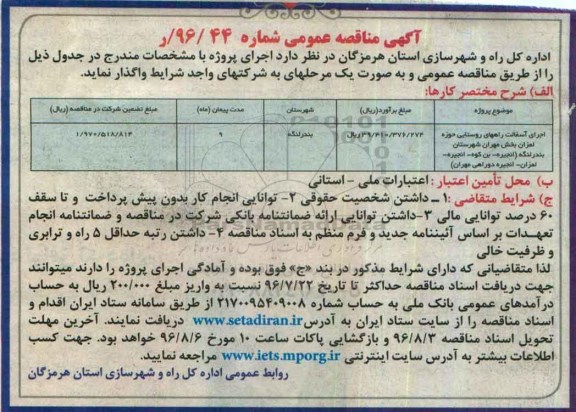 آگهی مناقصه عمومی شماره ۹۶/۴۴/ر
اداره کل راه و شهرسازی استان هرمزگان در نظر دارد اجرای پروژه با مشخصات مندرج در جدول ذیل
را از طریق مناقصه عمومی و به صورت یک مرحلهای به شرکتهای واجد شرایط واگذار نماید.
الف) شرح مختصر کارها:
موضوع پروژه
مبلغ برآورد(ریال)
شهرستان
مدت پیمان (ماه)
مبلغ تضمین شرکت در مناقصه (ریال)
اجرای آسفالت راههای روستایی حوزه
لمزان بخش مهران شهرستان
بندرلنگه (انجیره- بن کوه- انجیره-
لمزان- انجیره دوراهی مهران)
۳۹/۴۱۰/۳۷۶/۲۷۲ ریال
بندرلنگه
۹
۱/۹۷۰/۵۱۸/۸۱۴
ب) محل تأمین اعتبار : اعتبارات ملی - استانی
ج) شرایط متقاضی :۱ - داشتن شخصیت حقوقی ۲- توانایی انجام کار بدون پیش پرداخت و تا سقف
۶۰ درصد توانایی مالی ۳-داشتن توانایی ارائه ضمانتنامه بانکی شرکت در مناقصه و ضمانتنامه انجام
تعهدات بر اساس آئیننامه جدید و فرم منظم به اسناد مناقصه ۴- داشتن رتبه حداقل ۵ راه و ترابری
و ظرفیت خالی
لذا متقاضیانی که دارای شرایط مذکور در بند «ج» فوق بوده و آمادگی اجرای پروژه را دارند میتوانند
جهت دریافت اسناد مناقصه حداکثر تا تاریخ ۹۶/۷/۲۲ نسبت به واریز مبلغ ۲۰۰/۰۰۰ ریال به حساب
درآمدهای عمومی بانک ملی به حساب شماره ۲۱۷۰۰۹۵۴۰۹۰۰۸ از طریق سامانه ستاد ایران اقدام و
اسناد مناقصه را از سایت ستاد ایران به آدرس www.setadiran.ir دریافت نمایند. آخرین مهلت
تحویل اسناد مناقصه ۹۶/۸/۳ و بازگشایی پاکات ساعت ۱۰ مورخ ۹۶/۸/۶ خواهد بود. جهت کسب
اطلاعات بیشتر به آدرس سایت اینترنتی www.iets.mporg.ir مراجعه نمایید.
روابط عمومی اداره کل راه و شهرسازی استان هرمزگان